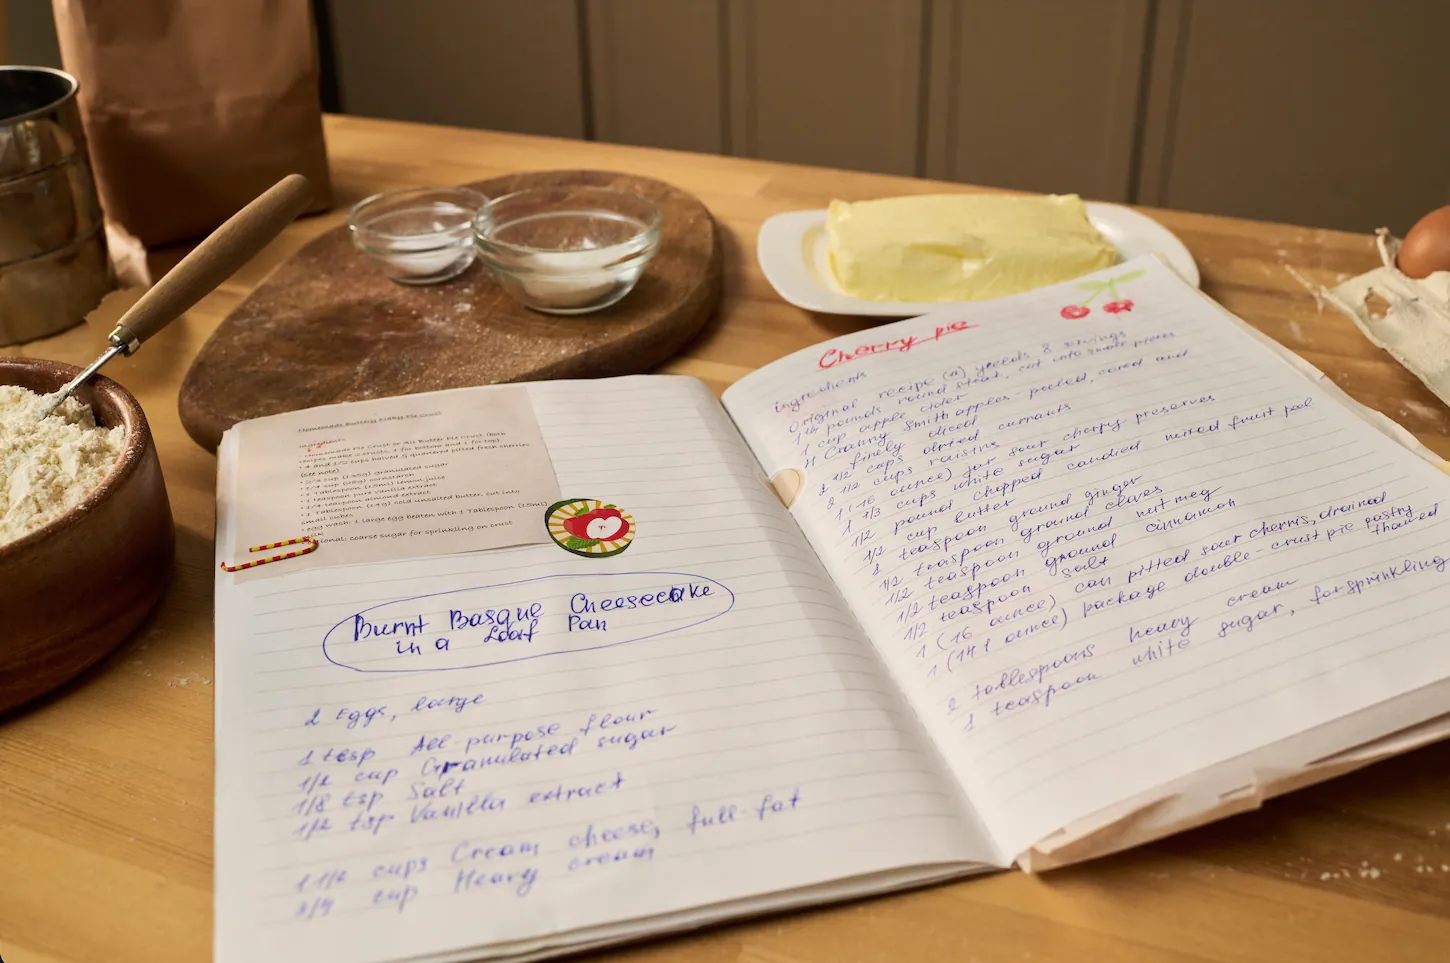 Homemade Buttery Flaky Pie Crust
Ingredients
Homemade Pie Crust or All Butter Pie Crust (both
recipes make 2 crusts, 1 for bottom and 1 for top)
• 4 and 1/2 cups halved & quartered pitted fresh cherries
(see note)
granulated sugar
cornstarch
1 Tablespoon (15ml) lemon juice
teaspoon pure vanilla extract
1/4 teaspoon almond extract
1 Tablespoon (14g) cold unsalted butter, cut into
small cubes
• egg wash: 1 large egg beaten with 1 Tablespoon (15ml)
milk
optional: coarse sugar for sprinkling on crust
Burnt Basque Cheesecake
in a Loaf Pan
2 Eggs, large
1 tesp All-purpose flour
1/2 cup Granulated sugar
1/8 tsp Salt
1/2 tsp Vanilla extract
1 1/2 cups Cream cheese, full-fat
3/4 cup Heavy cream
Cherry pie
ingredients
Original recipe (1x) yeelds 8 servings
pounds round steak, cut into small pieces
1 cup apple cider
4 Granny Smith apples - peeled, cored and
finely diced
2 1/2 cups dried currants
2 1/2 cups raisins
1 (16 ounce) jar sour cherry preserves
1 1/3 cups white sugar
1 pound chopped candied mixed fruit peel
1/2 cup butter
1/2 teaspoon ground ginger
1 teaspoon ground cloves
1/2 teaspoon ground nutmeg
1/2 teaspoon ground cinnamon
1/2 teaspoon salt
1 (16 ounce) can pitted sour cherris, drained
1 (14.1 ounce) package double-crust pie pastry
thawed
2 tablespoons heavy cream
1 teaspoon white sugar, for sprinkling